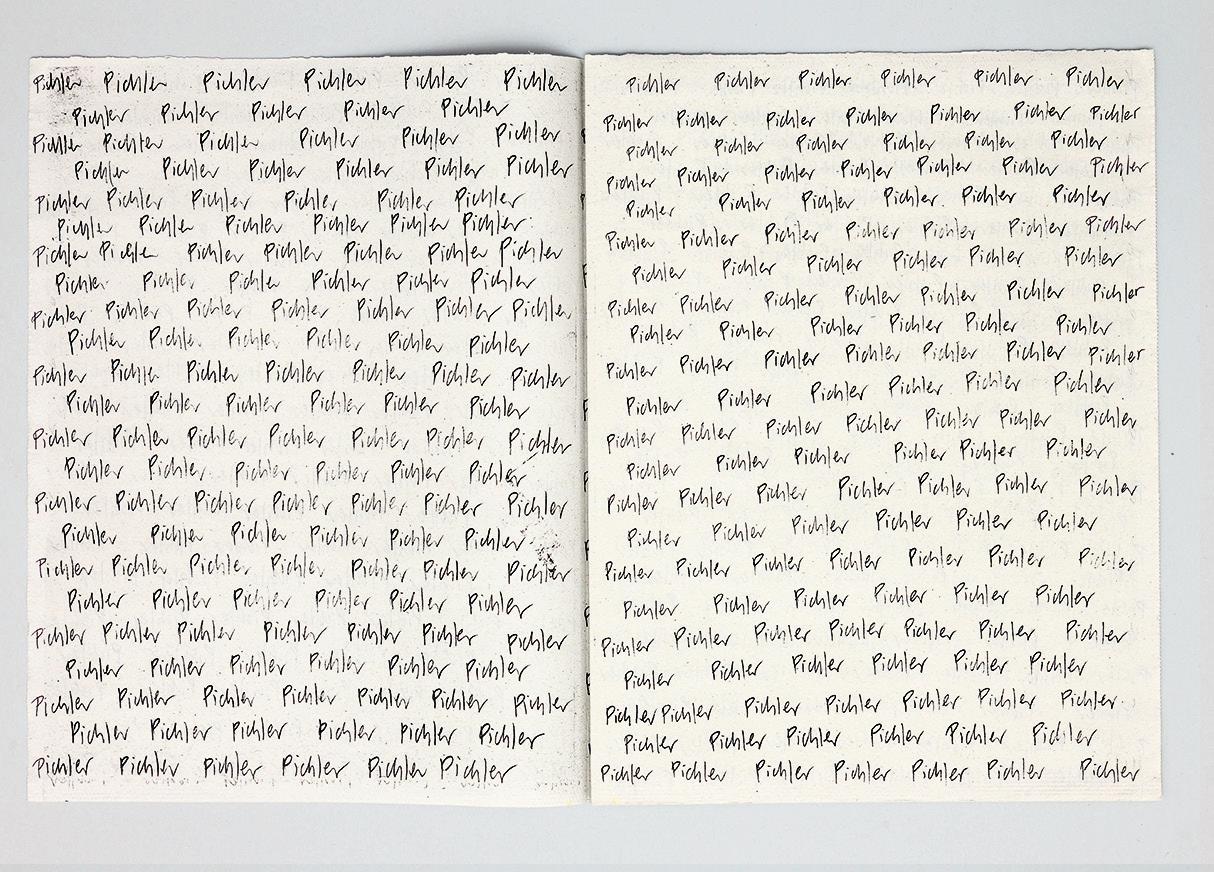 Pichler Pichler Pichler Pichler Pichler Pichler
Pichler Pichler Pichler Pichler Pichler
Pichler Pichler Pichler Pichler Pichler Pichler
Pichler Pichler Pichler Pichler Pichler Pichler
Pichler Pichler Pichler Pichler Pichler Pichler
Pichler Pichler Pichler Pichler Pichler Pichler
Pichler Pichler Pichler Pichler Pichler Pichler Pichler
Pichler Pichler Pichler Pichler Pichler Pichler
Pichler Pichler Pichler Pichler Pichler Pichler Pichler
Pichler Pichler Pichler Pichler Pichler Pichler
Pichler Pichler Pichler Pichler Pichler Pichler Pichler
Pichler Pichler Pichler Pichler Pichler Pichler
Pichler Pichler Pichler Pichler Pichler Pichler Pichler
Pichler Pichler Pichler Pichler Pichler Pichler
Pichler Pichler Pichler Pichler Pichler Pichler Pichler
Pichler Pichler Pichler Pichler Pichler Pichler
Pichler Pichler Pichler Pichler Pichler Pichler Pichler
Pichler Pichler Pichler Pichler Pichler Pichler
Pichler Pichler Pichler Pichler Pichler Pichler Pichler
Pichler Pichler Pichler Pichler Pichler Pichler
Pichler Pichler Pichler Pichler Pichler Pichler Pichler
Pichler Pichler Pichler Pichler Pichler Pichler
Pichler Pichler Pichler Pichler Pichler Pichler
Pichler Pichler Pichler Pichler Pichler Pichler
Pichler Pichler Pichler Pichler Pichler Pichler Pichler
Pichler Pichler Pichler Pichler Pichler Pichler
Pichler Pichler Pichler Pichler Pichler Pichler Pichler
Pichler Pichler Pichler Pichler Pichler Pichler
Pichler Pichler Pichler Pichler Pichler Pichler Pichler
Pichler Pichler Pichler Pichler Pichler Pichler
Pichler Pichler Pichler Pichler Pichler Pichler Pichler
Pichler Pichler Pichler Pichler Pichler Pichler
Pichler Pichler Pichler Pichler Pichler Pichler Pichler
Pichler Pichler Pichler Pichler Pichler Pichler
Pichler Pichler Pichler Pichler Pichler Pichler Pichler
Pichler Pichler Pichler Pichler Pichler Pichler
Pichler Pichler Pichler Pichler Pichler Pichler Pichler
Pichler Pichler Pichler Pichler Pichler Pichler
Pichler Pichler Pichler Pichler Pichler Pichler Pichler
Pichler Pichler Pichler Pichler Pichler Pichler
Pichler Pichler Pichler Pichler Pichler Pichler Pichler
Pichler Pichler Pichler Pichler Pichler Pichler
Pichler Pichler Pichler Pichler Pichler Pichler Pichler
Pichler Pichler Pichler Pichler Pichler Pichler
Pichler Pichler Pichler Pichler Pichler Pichler Pichler